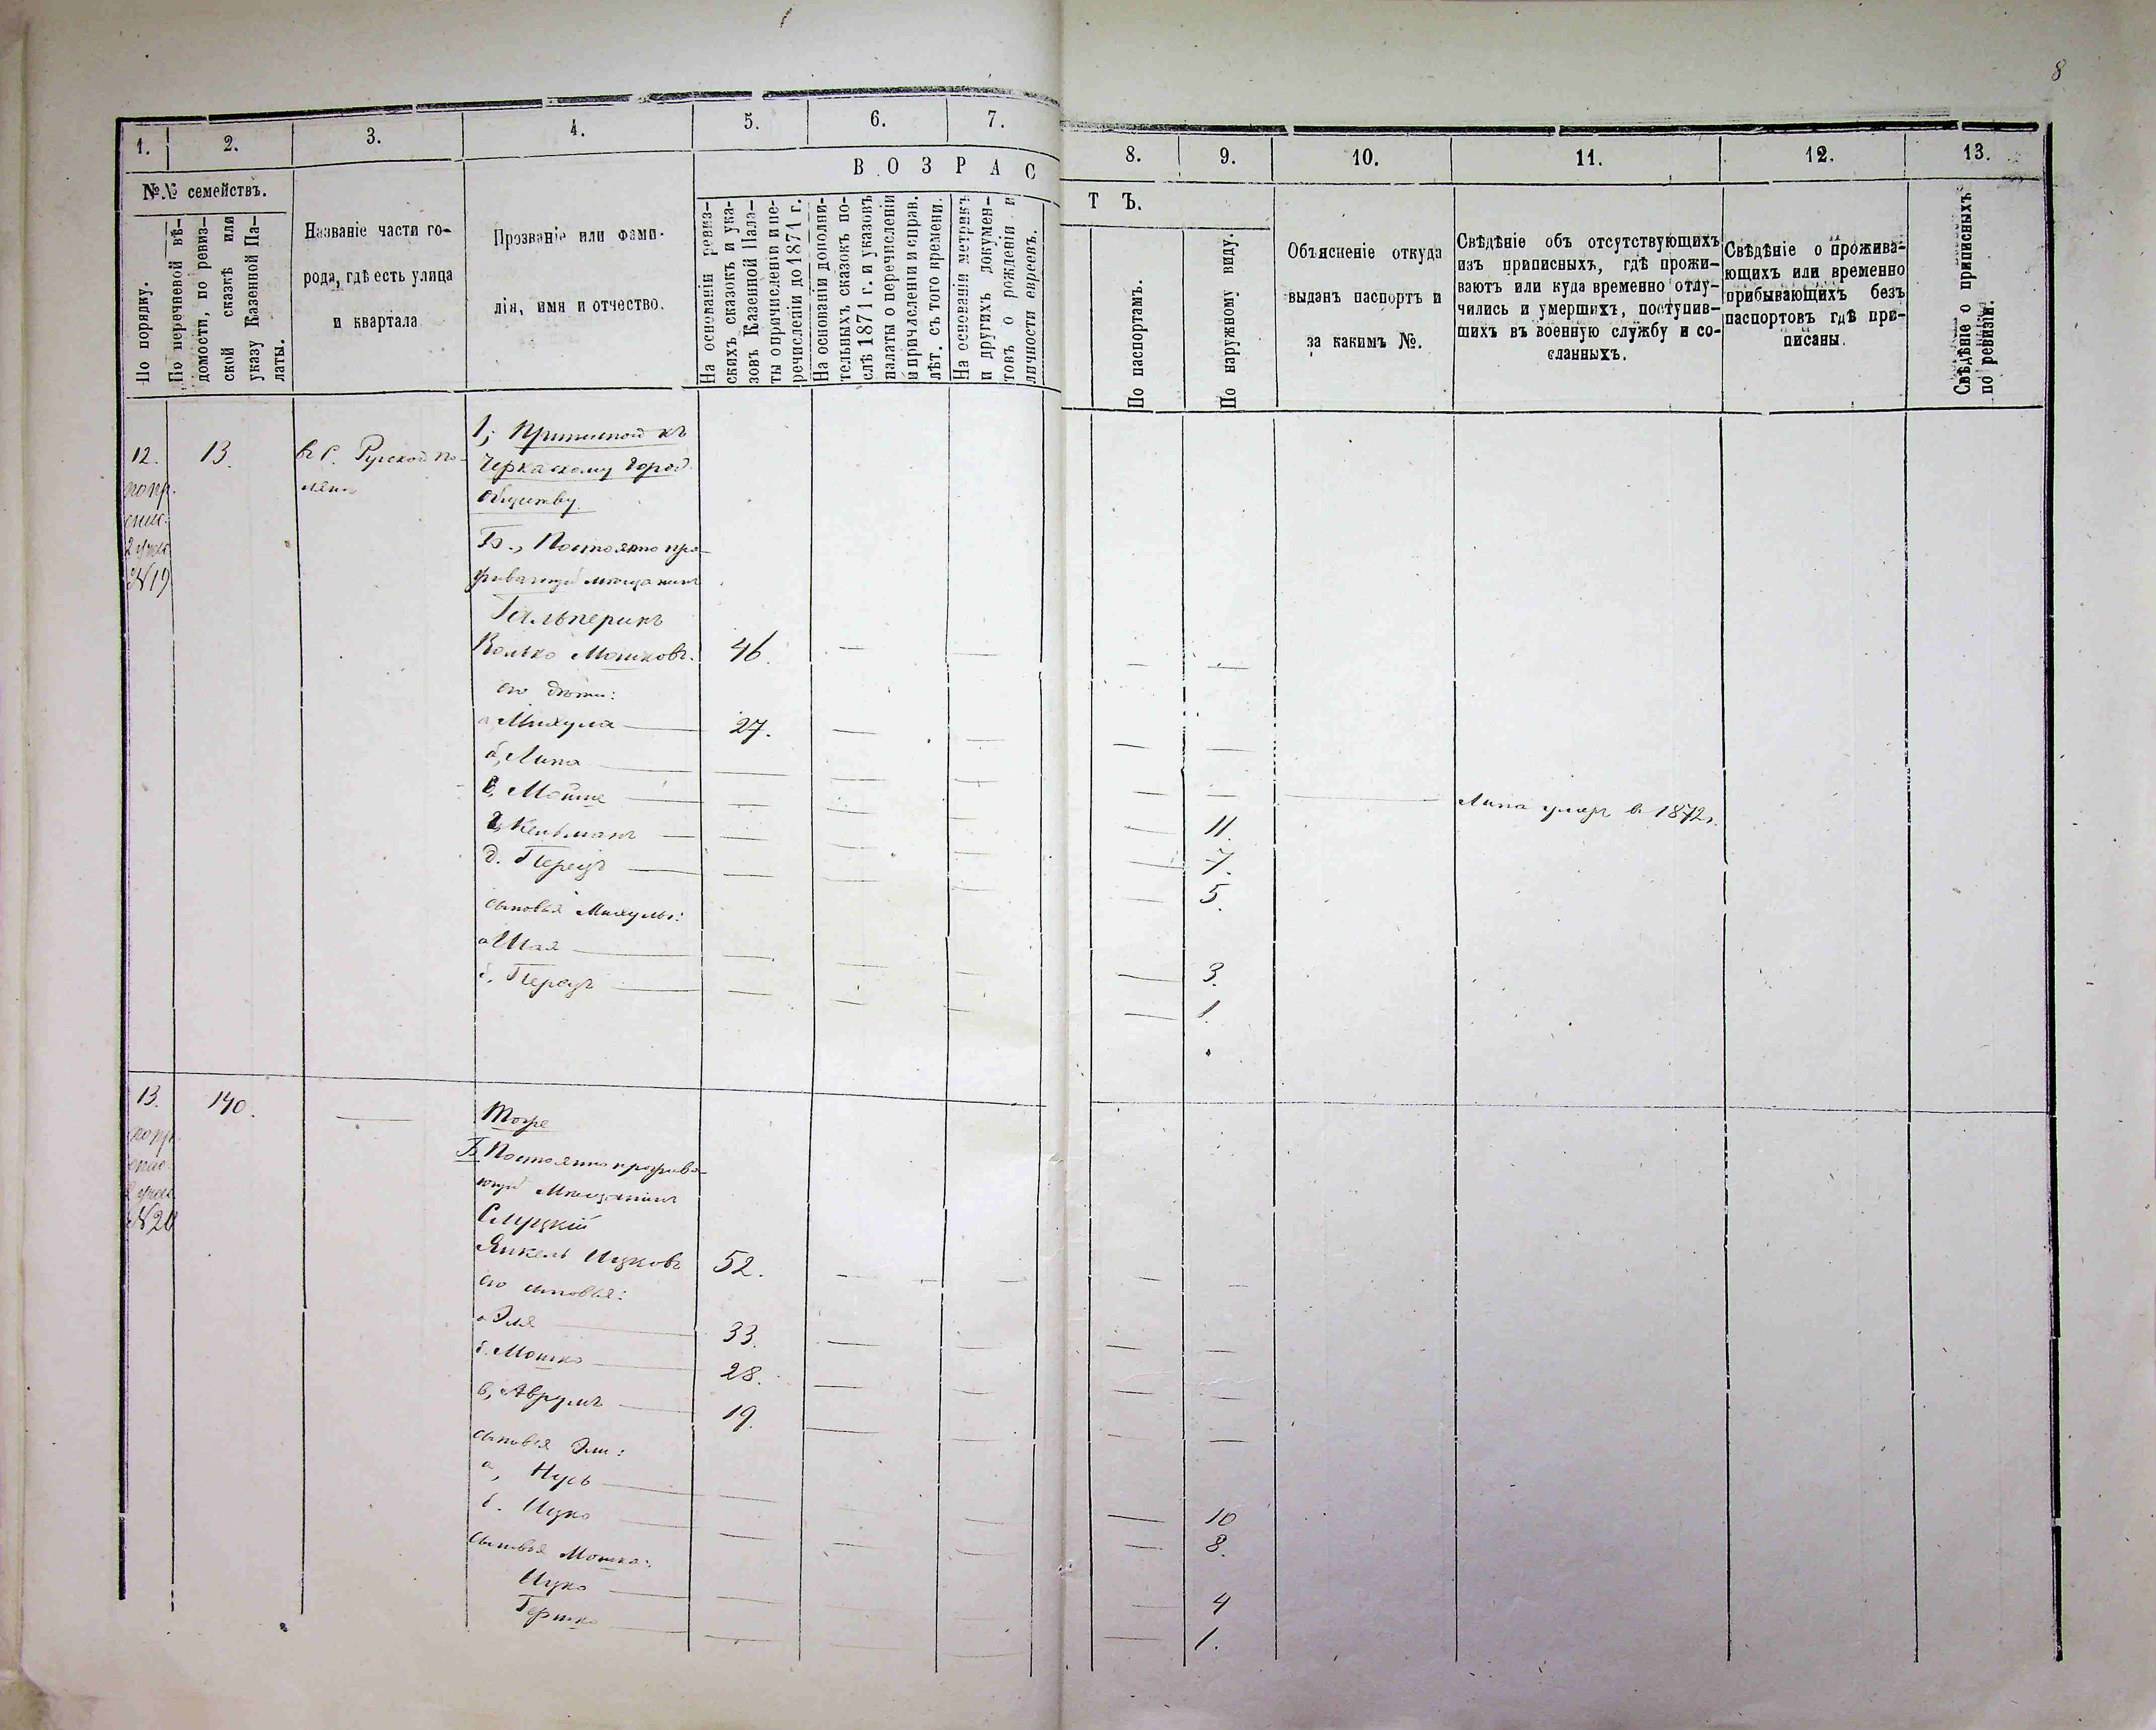 8
1.
2.
3.
4.
5.
6.
7.
8.
9.
10.
11.
12.
13.
№№ семействъ.
По порядку.
По перечневой вѣ-
домости, по ревиз-
ской сказкѣ или
указу Казенной Па-
латы.
Названіе части го-
рода, гдѣ есть улица
и квартала
Прозваніе или фами-
лія, имя и отчество.
ВОЗРАС
ТЪ.
На основаніи ревиз-
скихъ сказокъ и ука-
зовъ Казенной Пала-
ты о причисленіи и пе-
речисленіи до 1871 г.
На основаніи дополни-
тельныхъ сказокъ по-
слѣ 1871 г. и указовъ
палаты о перечисленіи
и причисленіи и справ.
лѣт. съ того времени.
На основаніи метрикъ
и другихъ докумен-
товъ о рожденіи и
личности евреевъ.
По паспортамъ.
По наружному виду.
Объясненіе откуда
выданъ паспортъ и
за какимъ №.
Свѣдѣніе объ отсутствующихъ
изъ приписныхъ, гдѣ прожи-
ваютъ или куда временно отлу-
чились и умершихъ, поступив-
шихъ въ военную службу и со-
сланныхъ.
Свѣдѣніе о прожива-
ющихъ или временно
прибывающихъ безъ
паспортовъ гдѣ при-
писаны.
Свѣдѣніе о приписныхъ
по ревизіи.
12.
по пр.
спис.
2 учас
№19
13.
в С. Руской По-
лянѣ
1; Приписной къ
Черкаскому Город.
обществу.
Б., Постоянно про-
живающій мѣщанинъ
Гальперинъ
Волько Мошковъ. 46.
его дѣти:
а Михула 27.
б, Липа Липа умеръ в 1872 г.
в, Мойше 11.
г, Кельманъ 7.
д. Перецъ 5.
сыновья Михулы:
а Шая 3.
б. Перецъ 1.
13.
по пр.
спис.
2 учас
№20
140.
Тоже
Б Постоянно прожива-
ющій Мѣщанинъ
Слуцкій
Янкель Ицковъ 52.
его сыновья:
а Эля 33.
б. Мошко 28.
в, Аврумъ 19.
сыновья Эли:
а, Нусь 10
б. Ицко 8.
сыновья Мошка:
Ицко 4
Гершко 1.